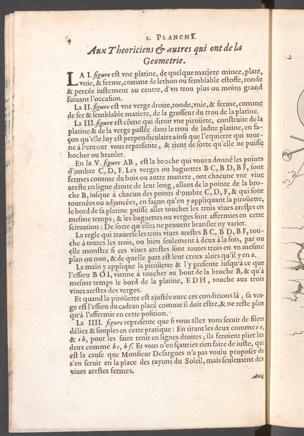 2. PLANCHE.
Aux Theoriciens & autres qui ont de la
Geometrie.
LA I. figure est vne platine, de quelque matiere mince, plate,
vnie, & ferme, comme de lethon ou semblable estoffe, ronde
& percée iustement au centre, d'vn trou plus ou moins grand
suiuant l'occasion.
La II. figure est vne verge droite, ronde, vnie, & ferme, comme
de fer & semblable matiere, de la grosseur du trou de la platine.
La III. figure est côme qui diroit vne piroüete, construite de la
platine & de la verge passée dans le trou de ladite platine, en fa-
çon qu'elle luy est perpendiculaire ainsi que l'equierre qui tour-
ne à l'entour vous represente, & tient de sorte qu'elle ne puisse
hocher ou branler.
En la V. figure AB, est la broche qui vous a donné les points
d'ombre C, D, F. Les verges ou baguettes B C, B D, B F, sont
fermes comme du bois ou autre matiere, ont chacune vne viue
areste en ligne droite de leur long, allant de la pointe de la bro-
che B, iusque à chacun des points d'ombre C, D, F, & qui sont
tournées ou adjancées, en façon qu'en y appliquant la piroüette,
le bord de sa platine puisse aller toucher les trois viues arestes en
mesme temps; & les baguettes ou verges sont affermies en cette
scituation: De sorte qu'elles ne peuuent branler ny varier.
La regle qui trauerse les trois viues arestes B C, B D, B F, tou-
che à toutes les trois, ou bien seulement à deux à la fois, par où
elle monstre si ces viues arestes sont toutes trois en vn mesme
plan ou non, & de quelle part est leur creux alors qu'il y en a.
La main y applique la piroüette & l'y presente iusqu'à ce que
l'essieu B O I, vienne à toucher au bout de la broche B, & qu'à
mesme temps le bord de la platine, E D H, touche aux trois
viues arestes des verges.
Et quand la piroüette est ajustée auec ces conditions là, sa ver-
ge est l'essieu du cadran placé comme il doit estre, & ne reste plus
qu'à l'affermir en cette position.
La IIII. figure represente que si vous allez vous seruir de filets
déliez & souples en cette pratique: En tirant les deux comme
& pour les faire tenir en lignes droites; ils feroient plier les
deux comme bc, bf. Et vous n'en sçauriez rien faire de iuste, qui
est la cause que Monsieur Desargues n'a pas voulu proposer de
s'en seruir en la place des rayons du Soleil, mais seulement des
viues arestes fermes.